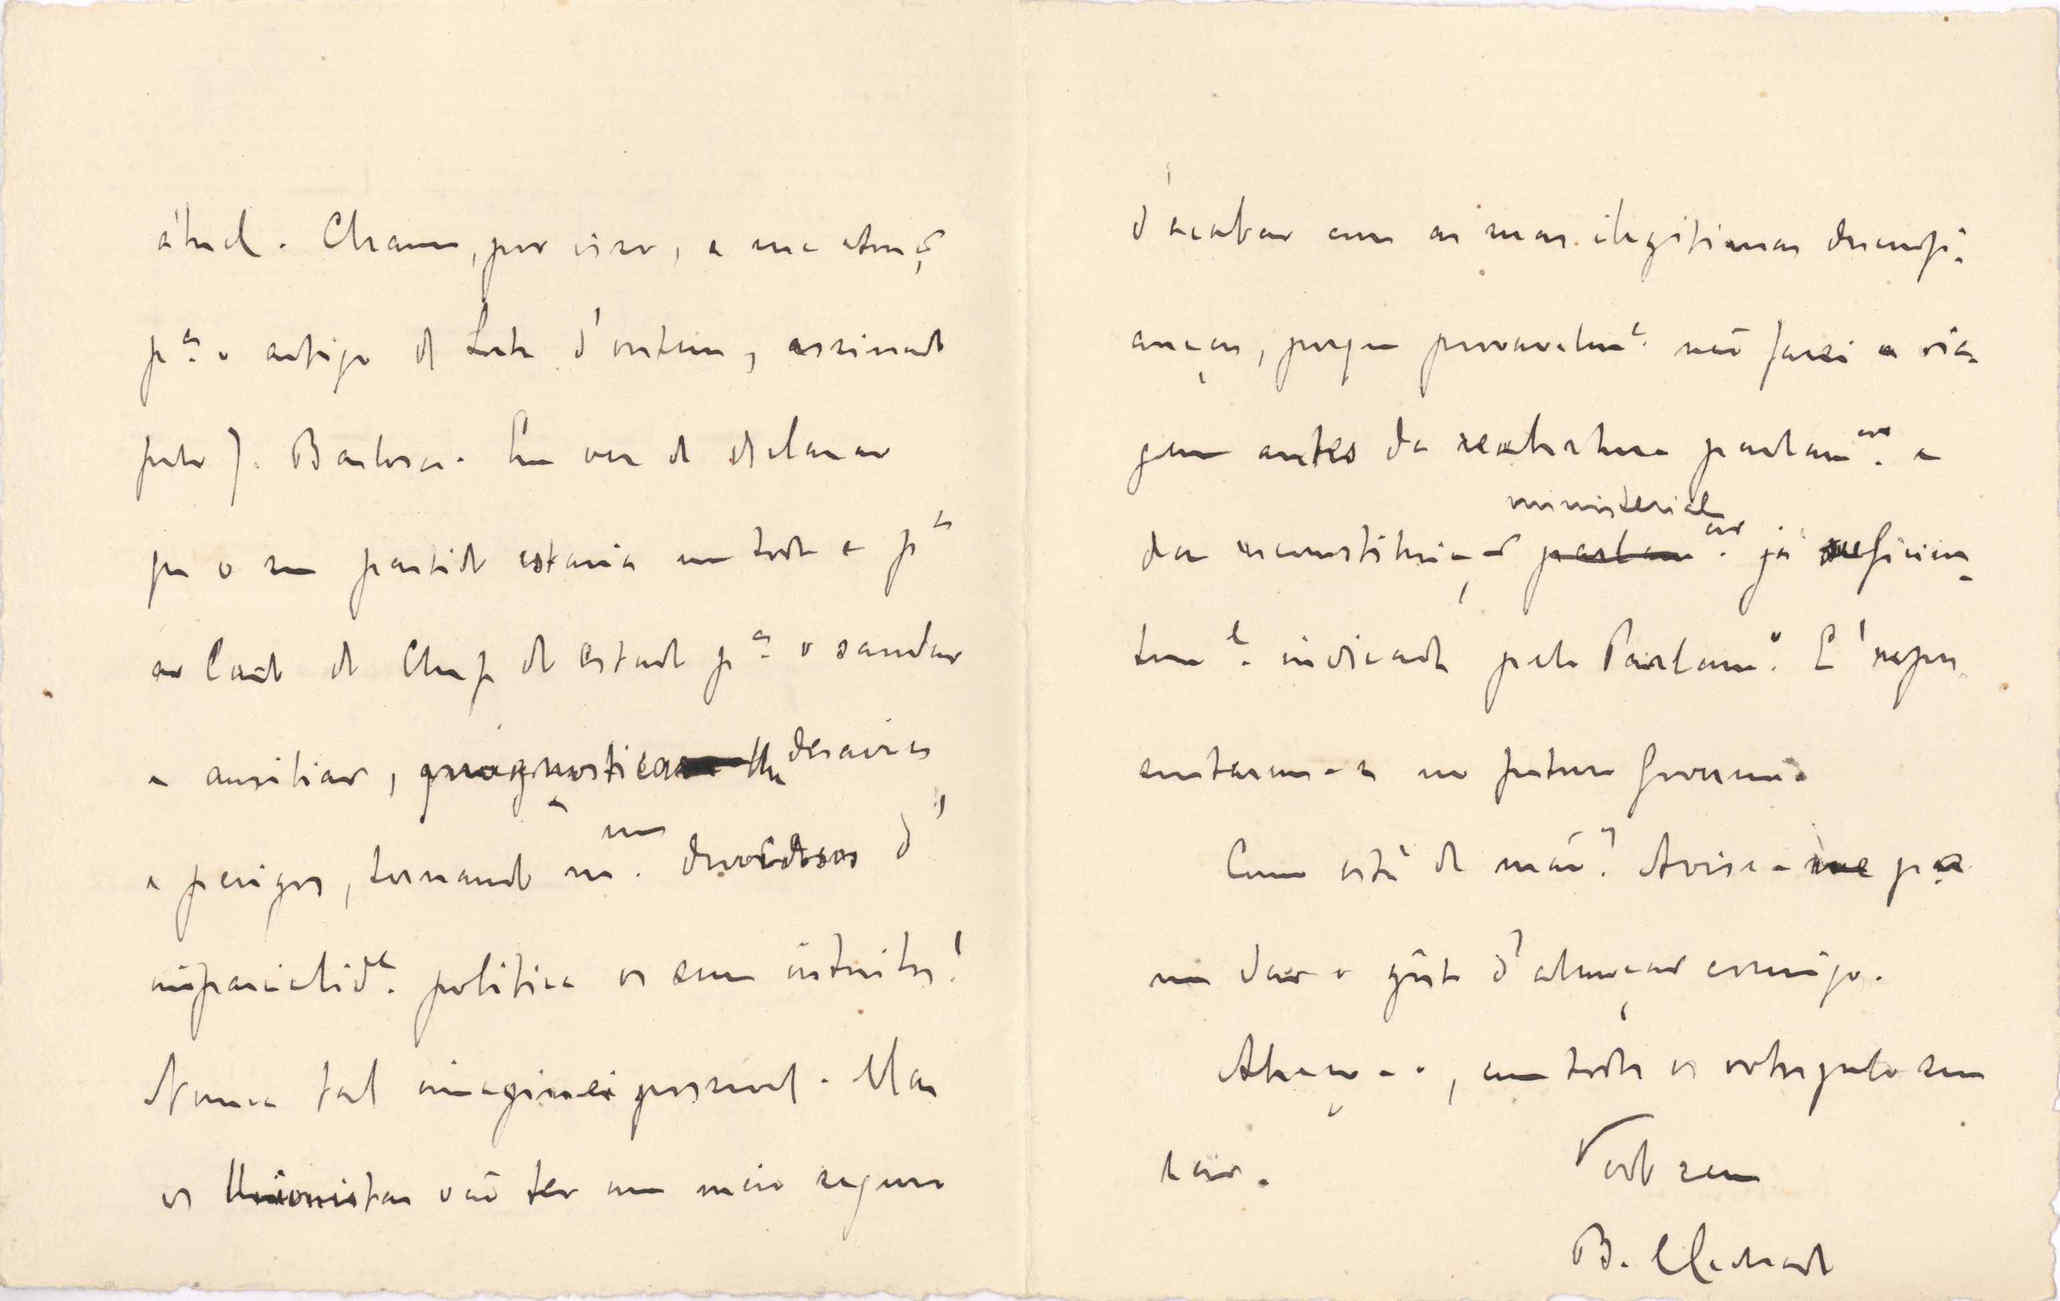 atual. Chamo, por isso, a sua atenção
pª o artigo da Lucta d'ontem, assinado
pelo J. Barbosa. Em vez de declarar
que o seu partido estaria em toda a pte
ao lado do Chefe do Estado pª o saudar
e auxiliar, prognostica-lhe desaires
e perigos, tornando mmo duvidosos d'
imparcialide politica os seus intuitos!
Nunca tal imaginei possivel. Mas
os Unionistas vão ter um meio seguro
d'acabar com as mais ilegitimas desconfi-
anças, porque provavelmte não farei a via-
gem antes da reabertura parlamar e
da reconstituição ministerial já suficien-
temte indicada pelo Parlamto. E' repre-
sentarem-se no futuro Governo.
Como está de mão? Avise-me pª
me dar o gosto d'almoçar comigo.
Abraça-o, com todo o
Todo seu
B. Machado